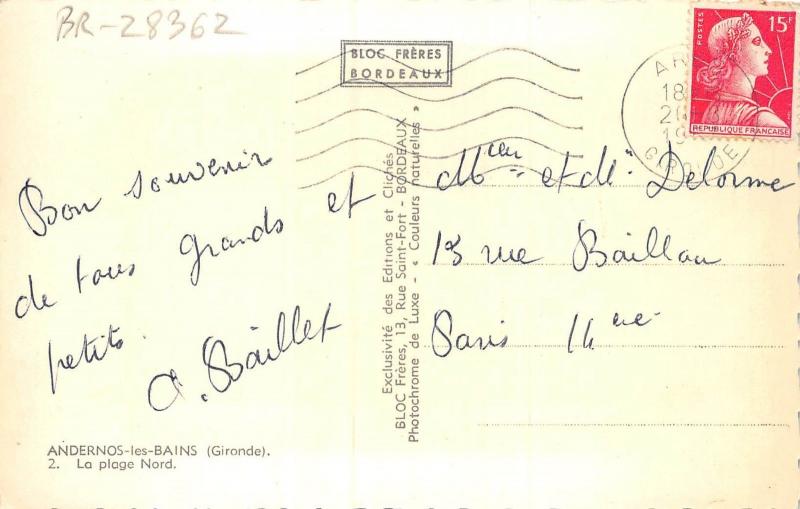 BR-28362
BLOC FRÈRES
BORDEAUX
POSTES
15F
RÉPUBLIQUE FRANÇAISE
AR
18
GIRONDE
Bon souvenir
de tous grands et
petits.
A. Baillet
Exclusivité des Editions et Clichés
BLOC Frères, 13, Rue Saint-Fort - BORDEAUX
Photochrome de Luxe - « Couleurs naturelles »
Mieur et Me Delorme
13 rue Baillou
Paris 14eme
ANDERNOS-les-BAINS (Gironde).
2. La plage Nord.